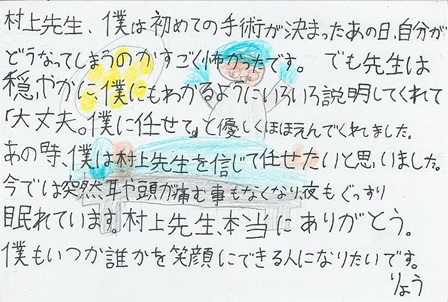 村上先生、僕は初めての手術が決まったあの日、自分が
どうなってしまうのかすごく怖かったです。 でも先生は
穏やかに僕にもわかるようにいろいろ説明してくれて
「大丈夫。僕に任せて」と優しくほほえんでくれました。
あの時、僕は村上先生を信じて任せたいと思いました。
今では突然耳や頭が痛む事もなくなり夜もぐっすり
眠れています。村上先生、本当にありがとう。
僕もいつか誰かを笑顔にできる人になりたいです。
りょう